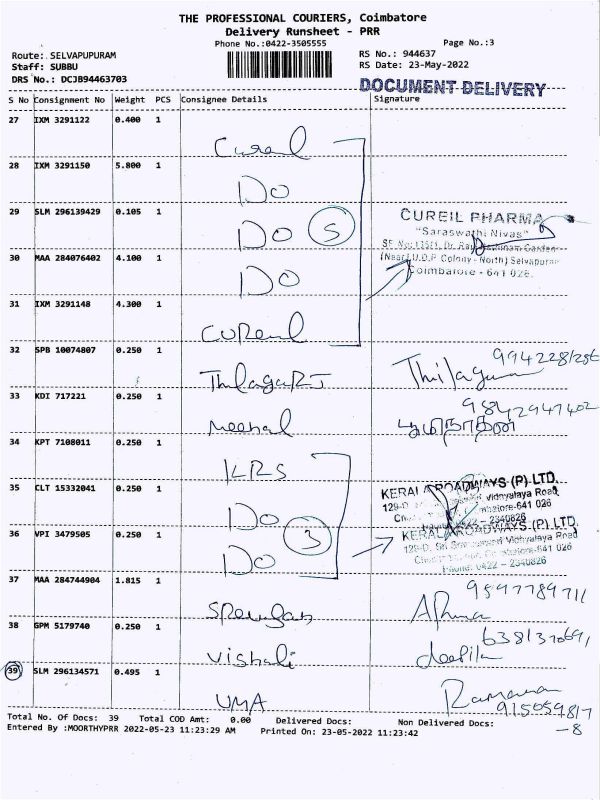 THE PROFESSIONAL COURIERS, Coimbatore
Delivery Runsheet - PRR
Phone No.:0422-3505555
Page No.:3
Route: SELVAPUPURAM
RS No.: 944637
Staff: SUBBU
RS Date: 23-May-2022
DRS No.: DCJB94463703
DOCUMENT DELIVERY
S No Consignment No Weight PCS Consignee Details Signature
27 IXM 3291122 0.400 1
Cureil
28 IXM 3291150 5.800 1
DO
29 SLM 296139429 0.105 1
DO 5
CUREIL PHARMA
"Saraswathi Nivas"
(Near U.D.P Colony - North) Selvapuram
Coimbatore - 641 026.
30 MAA 284076402 4.100 1
DO
31 IXM 3291148 4.300 1
Cureil
32 SPB 10074807 0.250 1
Thilaga
33 KDI 717221 0.250 1
Meenal 9842947402
34 KPT 7108011 0.250 1
KRS
35 CLT 15332041 0.250 1
DO 3
KERALA ROADWAYS (P) LTD.
Vidhyalaya Road,
Coimbatore-641 026
- 2340826
36 VPI 3479505 0.250 1
DO
KERALA ROADWAYS (P) LTD.
129-D, Vidhyalaya Road
Coimbatore-641 026
Phone: 0422 - 2340826
37 MAA 284744904 1.815 1
9597789711
38 GPM 5179740 0.250 1
Vishali
39 SLM 296134571 0.495 1
UMA
Total No. Of Docs: 39 Total COD Amt: 0.00 Delivered Docs: Non Delivered Docs:
-8
Entered By :MOORTHYPRR 2022-05-23 11:23:29 AM Printed On: 23-05-2022 11:23:42